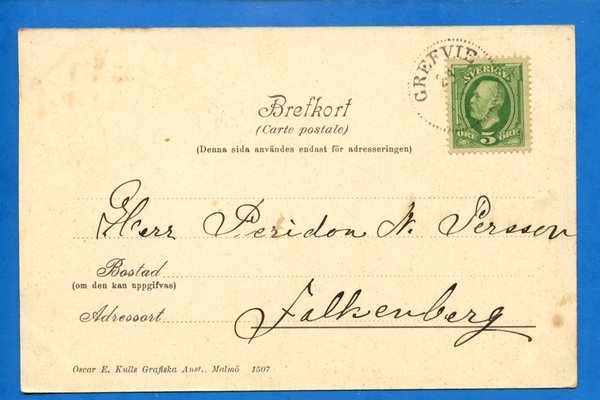 GREFVIE
SVERIGE
ÖRE 5 ÖRE
Brefkort
(Carte postale)
(Denna sida användes endast för adresseringen)
Herr Peridon N. Persson
Bostad
(om den kan uppgifvas)
Adressort Falkenberg
Oscar E. Kulls Grafiska Anst., Malmö 1507